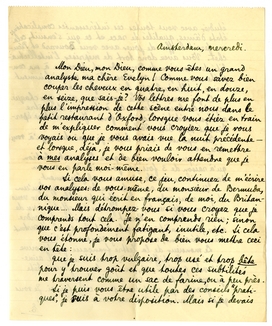 Amsterdam, mercredi.
Mon Dieu, mon Dieu, comme vous êtes un grand
analyste ma chère Evelyn! Comme vous savez bien
couper les cheveux en quatre, en huit, en douze,
en seize, que sais-je? Vos lettres me font de plus en
plus l'impression de cette scène entre nous dans le
petit restaurant d'Oxford, lorsque vous étiez en train
de m'expliquer comment vous croyiez que je vous
voyais ou que je vous avais vue la nuit précédente —
et lorsque, déjà, je vous priais de vous en remettre
à mes analyses et de bien vouloir attendre que je
vous en parle moi-même.
Si cela vous amuse, ce jeu, continuez de m'écrire
vos analyses de vous-même, du monsieur de Bermuba,
du monsieur qui écrit en français, de moi, du Britan-
nique... Mais détrompez-vous si vous croyez que je
comprends tout cela. Je n'en comprends rien; sinon
que c'est profondément fatigant, inutile, etc. Si cela
vous étonne, je vous propose de bien vous mettre ceci
en tête:
que je suis trop vulgaire, trop usé et trop bête
pour y trouver goût et que toutes ces subtilités
me traversent comme un sac de farine, ou à peu près.
Si je puis vous être utile par des conseils "prati-
ques", je suis à votre disposition. Mais si je devais